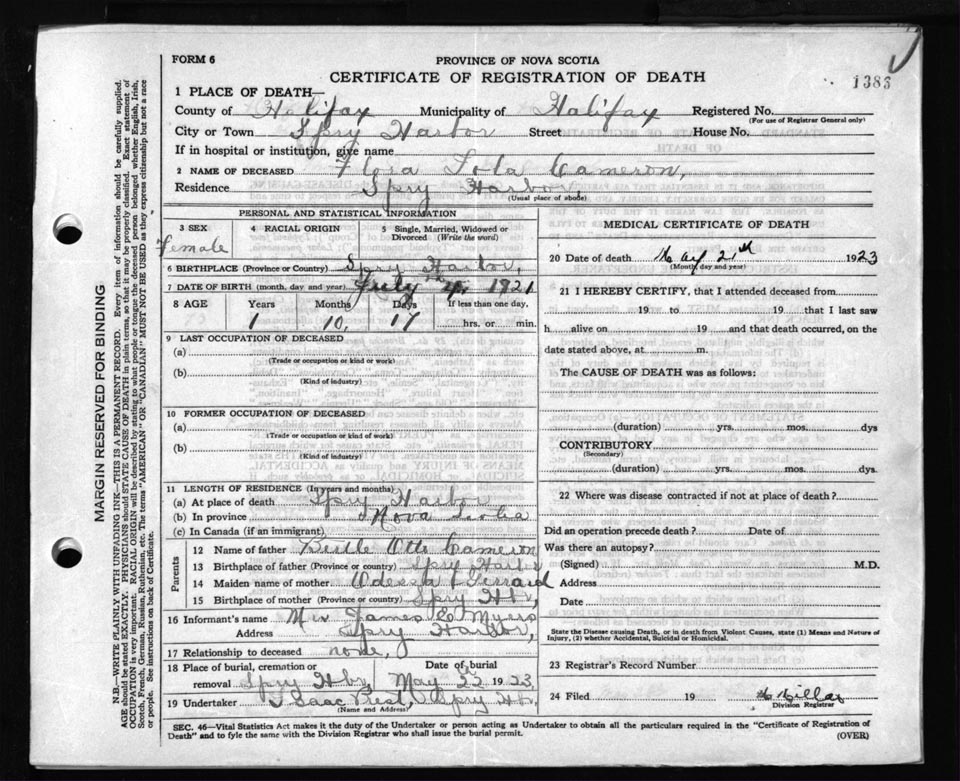 FORM 6
PROVINCE OF NOVA SCOTIA
CERTIFICATE OF REGISTRATION OF DEATH
1383
1 PLACE OF DEATH—
County of Halifax Municipality of Halifax Registered No.
(For use of Registrar General only)
City or Town Spry Harbor Street House No.
If in hospital or institution, give name
2 NAME OF DECEASED Flora Lola Cameron,
Residence Spry Harbor,
(Usual place of abode)
PERSONAL AND STATISTICAL INFORMATION
3 SEX 4 RACIAL ORIGIN 5 Single, Married, Widowed or Divorced (Write the word)
Female
6 BIRTHPLACE (Province or Country) Spry Harbor,
7 DATE OF BIRTH (month, day, and year) July 4th, 1921
8 AGE Years Months Days If less than one day,
1 10, 17 hrs. or min.
9 LAST OCCUPATION OF DECEASED
(a)
(Trade or occupation or kind or work)
(b)
(Kind of industry)
10 FORMER OCCUPATION OF DECEASED
(a)
(Trade or occupation or kind of work)
(b)
(Kind of industry)
11 LENGTH OF RESIDENCE (In years and months)
(a) At place of death Spry Harbor
(b) In province Nova Scotia
(c) In Canada (if an immigrant)
Parents
12 Name of father Otto Cameron
13 Birthplace of father (Province or country) Spry Harbor
14 Maiden name of mother Odessa
15 Birthplace of mother (Province or country) Spry Hbr,
16 Informant's name James E Myers
Address Spry Harbor,
17 Relationship to deceased none,
18 Place of burial, cremation or removal Spry Hbr, Date of burial May 22 1923
19 Undertaker Isaac Spry Hbr,
(Name and Address)
MEDICAL CERTIFICATE OF DEATH
20 Date of death May 21th 1923
(Month, day and year)
21 I HEREBY CERTIFY, that I attended deceased from
19 to 19 that I last saw
h alive on 19 and that death occurred, on the
date stated above, at m.
The CAUSE OF DEATH was as follows:
(duration) yrs. mos. dys
CONTRIBUTORY
(Secondary)
(duration) yrs. mos. dys
22 Where was disease contracted if not at place of death?
Did an operation precede death? Date of
Was there an autopsy?
(Signed) M.D.
Address
Date
State the Disease causing Death, or in death from Violent Causes, state (1) Means and Nature of Injury, (2) whether Accidental, Suicidal or Homicidal.
23 Registrar's Record Number
24 Filed 19
Division Registrar
SEC. 46—Vital Statistics Act makes it the duty of the Undertaker or person acting as Undertaker to obtain all the particulars required in the "Certificate of Registration of
Death" and to fyle the same with the Division Registrar who shall issue the burial permit.
(OVER)
MARGIN RESERVED FOR BINDING
N.B.—WRITE PLAINLY WITH UNFADING INK—THIS IS A PERMANENT RECORD. Every item of information should be carefully supplied.
AGE should be stated EXACTLY. PHYSICIANS should STATE CAUSE OF DEATH in plain terms, so that it may be properly classified. Exact statement of
OCCUPATION is very important. RACIAL ORIGIN will be described by stating to what people or tongue the deceased person belonged whether English, Irish,
Scotch, French, German, Russian, Ruthenian, etc. The terms "AMERICAN" OR "CANADIAN" MUST NOT BE USED as they express citizenship but not a race
or people. See instructions on back of Certificate.